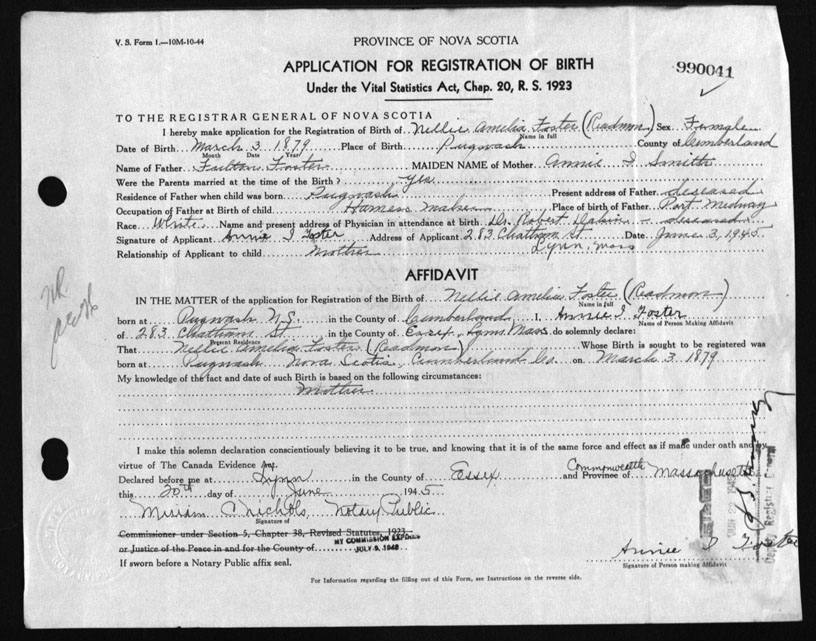 V. S. Form 1.—10M-10-44
PROVINCE OF NOVA SCOTIA
APPLICATION FOR REGISTRATION OF BIRTH
990041
Under the Vital Statistics Act, Chap. 20, R. S. 1923
TO THE REGISTRAR GENERAL OF NOVA SCOTIA
I hereby make application for the Registration of Birth of Nellie Amelia Foster (Readmon) Sex Female
Name in full
Date of Birth March 3 1879 Place of Birth Pugwash County of Cumberland
Month Date Year
Name of Father Fulton Foster MAIDEN NAME of Mother Annie I Smith
Were the Parents married at the time of the Birth? Yes
Residence of Father when child was born Pugwash Present address of Father deseased
Occupation of Father at Birth of child Harness Maker Place of birth of Father Port Medway
Race White Name and present address of Physician in attendance at birth Dr. Robert - deseased
Signature of Applicant Annie I Foster Address of Applicant 283 Chatham St. Date June 3, 1945
Lynn, Mass
Relationship of Applicant to child Mother
AFFIDAVIT
IN THE MATTER of the application for Registration of the Birth of Nellie Amelia Foster (Readmon)
Name in full
born at Pugwash N.S. in the County of Cumberland I, Annie I. Foster
Name of Person Making Affidavit
of 283 Chatham St in the County of Essex, Lynn Mass do solemnly declare:
Present Residence
That Nellie Amelia Foster (Readmon) Whose Birth is sought to be registered was
born at Pugwash Nova Scotia, Cumberland Co. on March 3 1879
My knowledge of the fact and date of such Birth is based on the following circumstances:
Mother
I make this solemn declaration conscientiously believing it to be true, and knowing that it is of the same force and effect as if made under oath and by
virtue of The Canada Evidence Act.
Declared before me at Lynn in the County of Essex Commonwealth and Province of Massachusetts
this 20th day of June 1945
Miriam C Nichols, Notary Public
Signature of
Commissioner under Section 5, Chapter 38, Revised Statutes, 1923
MY COMMISSION EXPIRES
or Justice of the Peace in and for the County of JULY 9, 1948
Annie I Foster
If sworn before a Notary Public affix seal.
Signature of Person making Affidavit
For Information regarding the filling out of this Form, see Instructions on the reverse side.
Deputy Registrar General